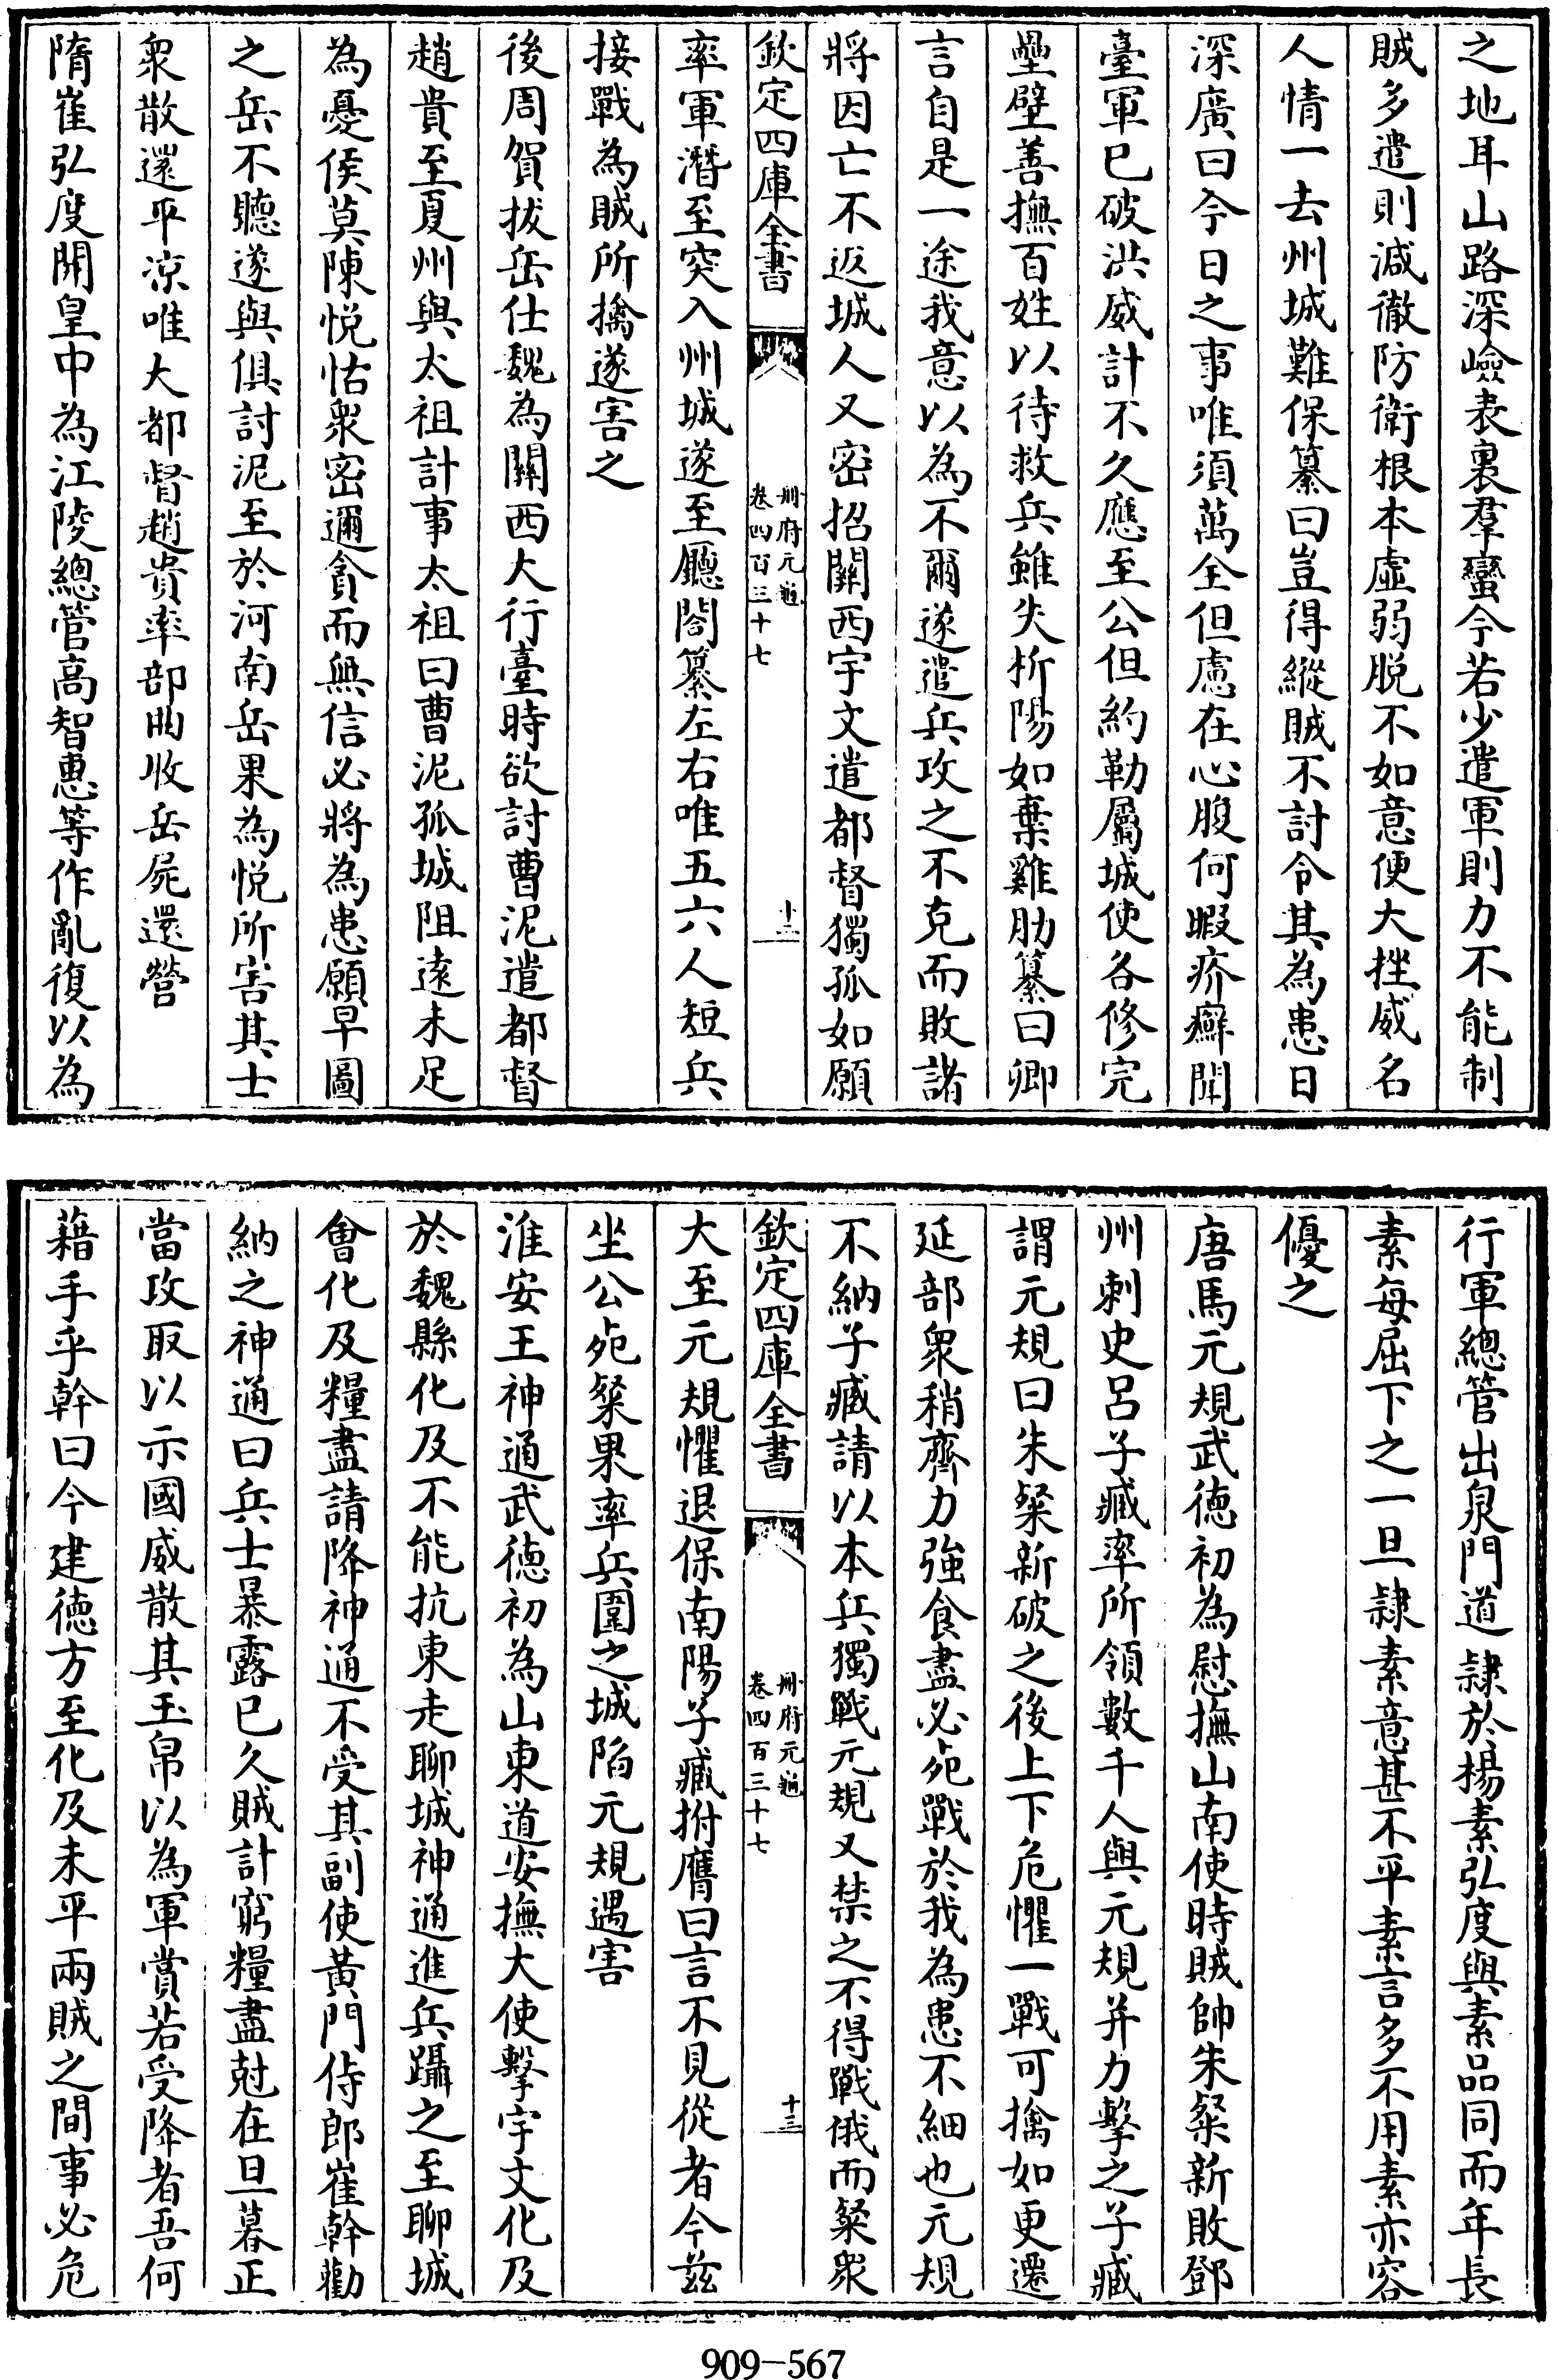 之地耳山路深嶮表裏羣蠻今若少遣軍則力不能制
賊多遣則減徹防衛根本虛弱脱不如意便大挫威名
人情一去州城難保纂曰豈得縱賊不討令其為患日
深廣曰今日之事唯須萬全但慮在心腹何暇疥癬聞
臺軍已破洪威計不久應至公但約勒屬城使各修完
壘壁善撫百姓以待救兵雖失析陽如棄雞肋纂曰卿
言自是一途我意以為不爾遂遣兵攻之不克而敗諸
將因亡不返城人又密招關西宇文遣都督獨孤如願
欽定四庫全書
冊府元龜
卷四百三十七
十三
率軍潛至突入州城遂至廳閤纂左右唯五六人短兵
接戰為賊所擒遂害之
後周賀拔岳仕魏為關西大行臺時欲討曹泥遣都督
趙貴至夏州與太祖計事太祖曰曹泥孤城阻逺未足
為憂侯莫陳悦怙衆密邇貪而無信必將為患願早圖
之岳不聽遂與俱討泥至於河南岳果為悦所害其士
衆散還平凉唯大都督趙貴率部曲收岳屍還營
隋崔弘度開皇中為江陵總管高智惠等作亂復以為
行軍總管出泉門道隸於楊素弘度與素品同而年長
素每屈下之一旦隸素意甚不平素言多不用素亦容
優之
唐馬元規武徳初為慰撫山南使時賊帥朱粲新敗鄧
州刺史呂子臧率所領數千人與元規并力擊之子臧
謂元規曰朱粲新破之後上下危懼一戰可擒如更遷
延部衆稍齊力強食盡必死戰於我為患不細也元規
不納子臧請以本兵獨戰元規又禁之不得戰俄而粲衆
欽定四庫全書
冊府元龜
卷四百三十七
十三
大至元規懼退保南陽子臧拊膺曰言不見從者今兹
坐公死粲果率兵圍之城陷元規遇害
淮安王神通武徳初為山東道安撫大使擊宇文化及
於魏縣化及不能抗東走聊城神通進兵躡之至聊城
會化及糧盡請降神通不受其副使黃門侍郎崔幹勸
納之神通曰兵士暴露已久賊計窮糧盡尅在旦暮正
當攻取以示國威散其玉帛以為軍賞若受降者吾何
藉手乎幹曰今建徳方至化及未平兩賊之間事必危
909-567